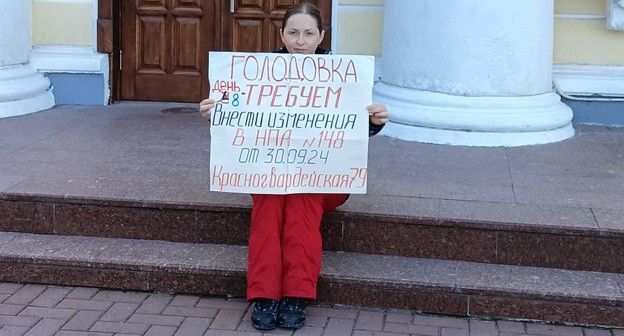 ГОЛОДОВКА
день 8 - ТРЕБУЕМ
Внести изменения
В НПА №148
ОТ 30.09.24
Красногвардейская 79